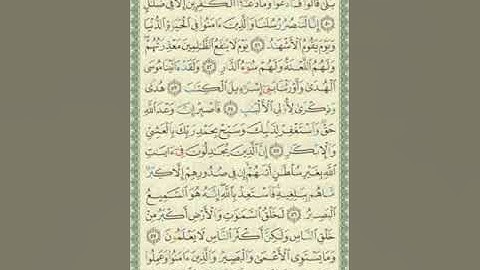 بَلَىٰ قَالُوا۟ فَٱدْعُوا۟ وَمَا دُعَـٰٓؤُا۟ ٱلْكَـٰفِرِينَ إِلَّا فِى ضَلَـٰلٍ
﴿٥٠﴾ إِنَّا لَنَنصُرُ رُسُلَنَا وَٱلَّذِينَ ءَامَنُوا۟ فِى ٱلْحَيَوٰةِ ٱلدُّنْيَا
وَيَوْمَ يَقُومُ ٱلْأَشْهَـٰدُ ﴿٥١﴾ يَوْمَ لَا يَنفَعُ ٱلظَّـٰلِمِينَ مَعْذِرَتُهُمْ
وَلَهُمُ ٱللَّعْنَةُ وَلَهُمْ سُوٓءُ ٱلدَّارِ ﴿٥٢﴾ وَلَقَدْ ءَاتَيْنَا مُوسَى
ٱلْهُدَىٰ وَأَوْرَثْنَا بَنِىٓ إِسْرَٰٓءِيلَ ٱلْكِتَـٰبَ ﴿٥٣﴾ هُدًى
وَذِكْرَىٰ لِأُو۟لِى ٱلْأَلْبَـٰبِ ﴿٥٤﴾ فَٱصْبِرْ إِنَّ وَعْدَ ٱللَّهِ
حَقٌّ وَٱسْتَغْفِرْ لِذَنۢبِكَ وَسَبِّحْ بِحَمْدِ رَبِّكَ بِٱلْعَشِىِّ
وَٱلْإِبْكَـٰرِ ﴿٥٥﴾ إِنَّ ٱلَّذِينَ يُجَـٰدِلُونَ فِىٓ ءَايَـٰتِ
ٱللَّهِ بِغَيْرِ سُلْطَـٰنٍ أَتَىٰهُمْ إِن فِى صُدُورِهِمْ إِلَّا كِبْرٌ
مَّا هُم بِبَـٰلِغِيهِ فَٱسْتَعِذْ بِٱللَّهِ إِنَّهُۥ هُوَ ٱلسَّمِيعُ
ٱلْبَصِيرُ ﴿٥٦﴾ لَخَلْقُ ٱلسَّمَـٰوَٰتِ وَٱلْأَرْضِ أَكْبَرُ مِنْ
خَلْقِ ٱلنَّاسِ وَلَـٰكِنَّ أَكْثَرَ ٱلنَّاسِ لَا يَعْلَمُونَ ﴿٥٧﴾
وَمَا يَسْتَوِى ٱلْأَعْمَىٰ وَٱلْبَصِيرُ وَٱلَّذِينَ ءَامَنُوا۟ وَعَمِلُوا۟